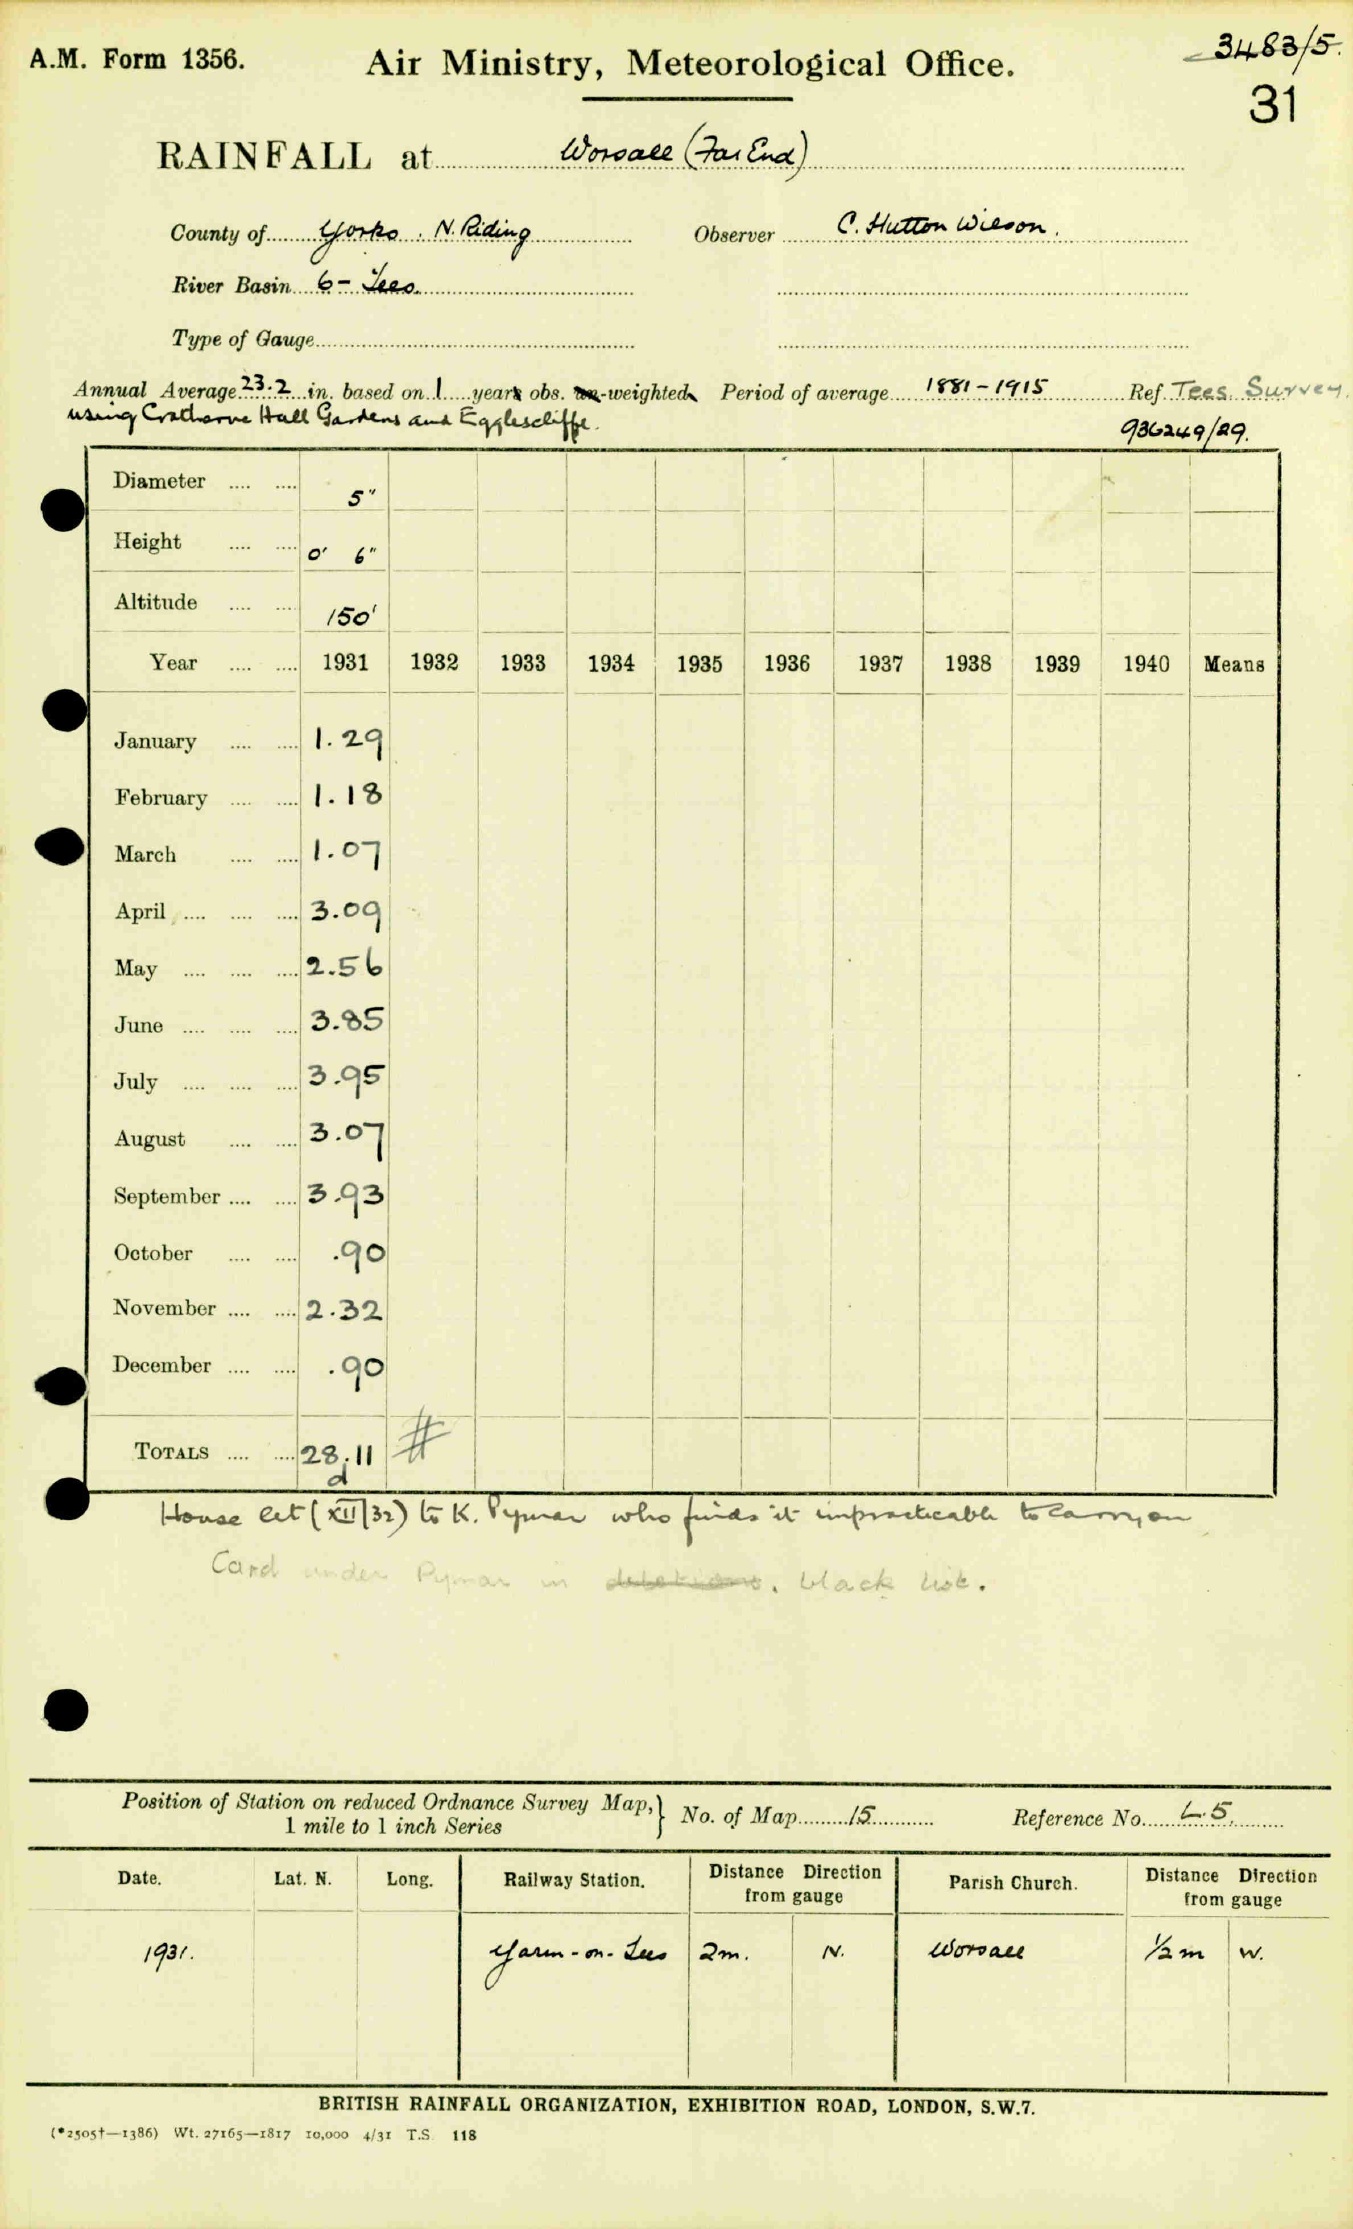 A.M. Form 1356.
Air Ministry, Meteorological Office.
3483/5.
31
RAINFALL at Worsall (Far End)
County of Yorks. N. Riding Observer C. Hutton Wilson.
River Basin 6 - Tees.
Type of Gauge
Annual Average 23.2 in. based on 1 years obs. un-weighted. Period of average 1881-1915 Ref Tees Survey
using Crathorne Hall Gardens and Egglescliffe. 936249/29.
Diameter .... .... 5"
Height .... .... 0' 6"
Altitude .... .... 150'
Year .... .... 1931 1932 1933 1934 1935 1936 1937 1938 1939 1940 Means
January .... .... 1.29
February .... .... 1.18
March .... .... 1.07
April .... .... .... 3.09
May .... .... .... 2.56
June .... .... .... 3.85
July .... .... .... 3.95
August .... .... 3.07
September .... .... 3.93
October .... .... .90
November .... .... 2.32
December .... .... .90
TOTALS .... .... 28.11 #
d
House let (XII/32) to K. Pymar who finds it impracticable to carry on
Card under Pymar in black list.
Position of Station on reduced Ordnance Survey Map, } No. of Map 15 Reference No. L.5.
1 mile to 1 inch Series
Date. Lat. N. Long. Railway Station. Distance Direction from gauge Parish Church. Distance Direction from gauge
1931. Yarm-on-Tees 2m. N. Worsall ½ m W.
BRITISH RAINFALL ORGANIZATION, EXHIBITION ROAD, LONDON, S.W.7.
(*2505†—1386) Wt. 27165—1817 10,000 4/31 T.S. 118